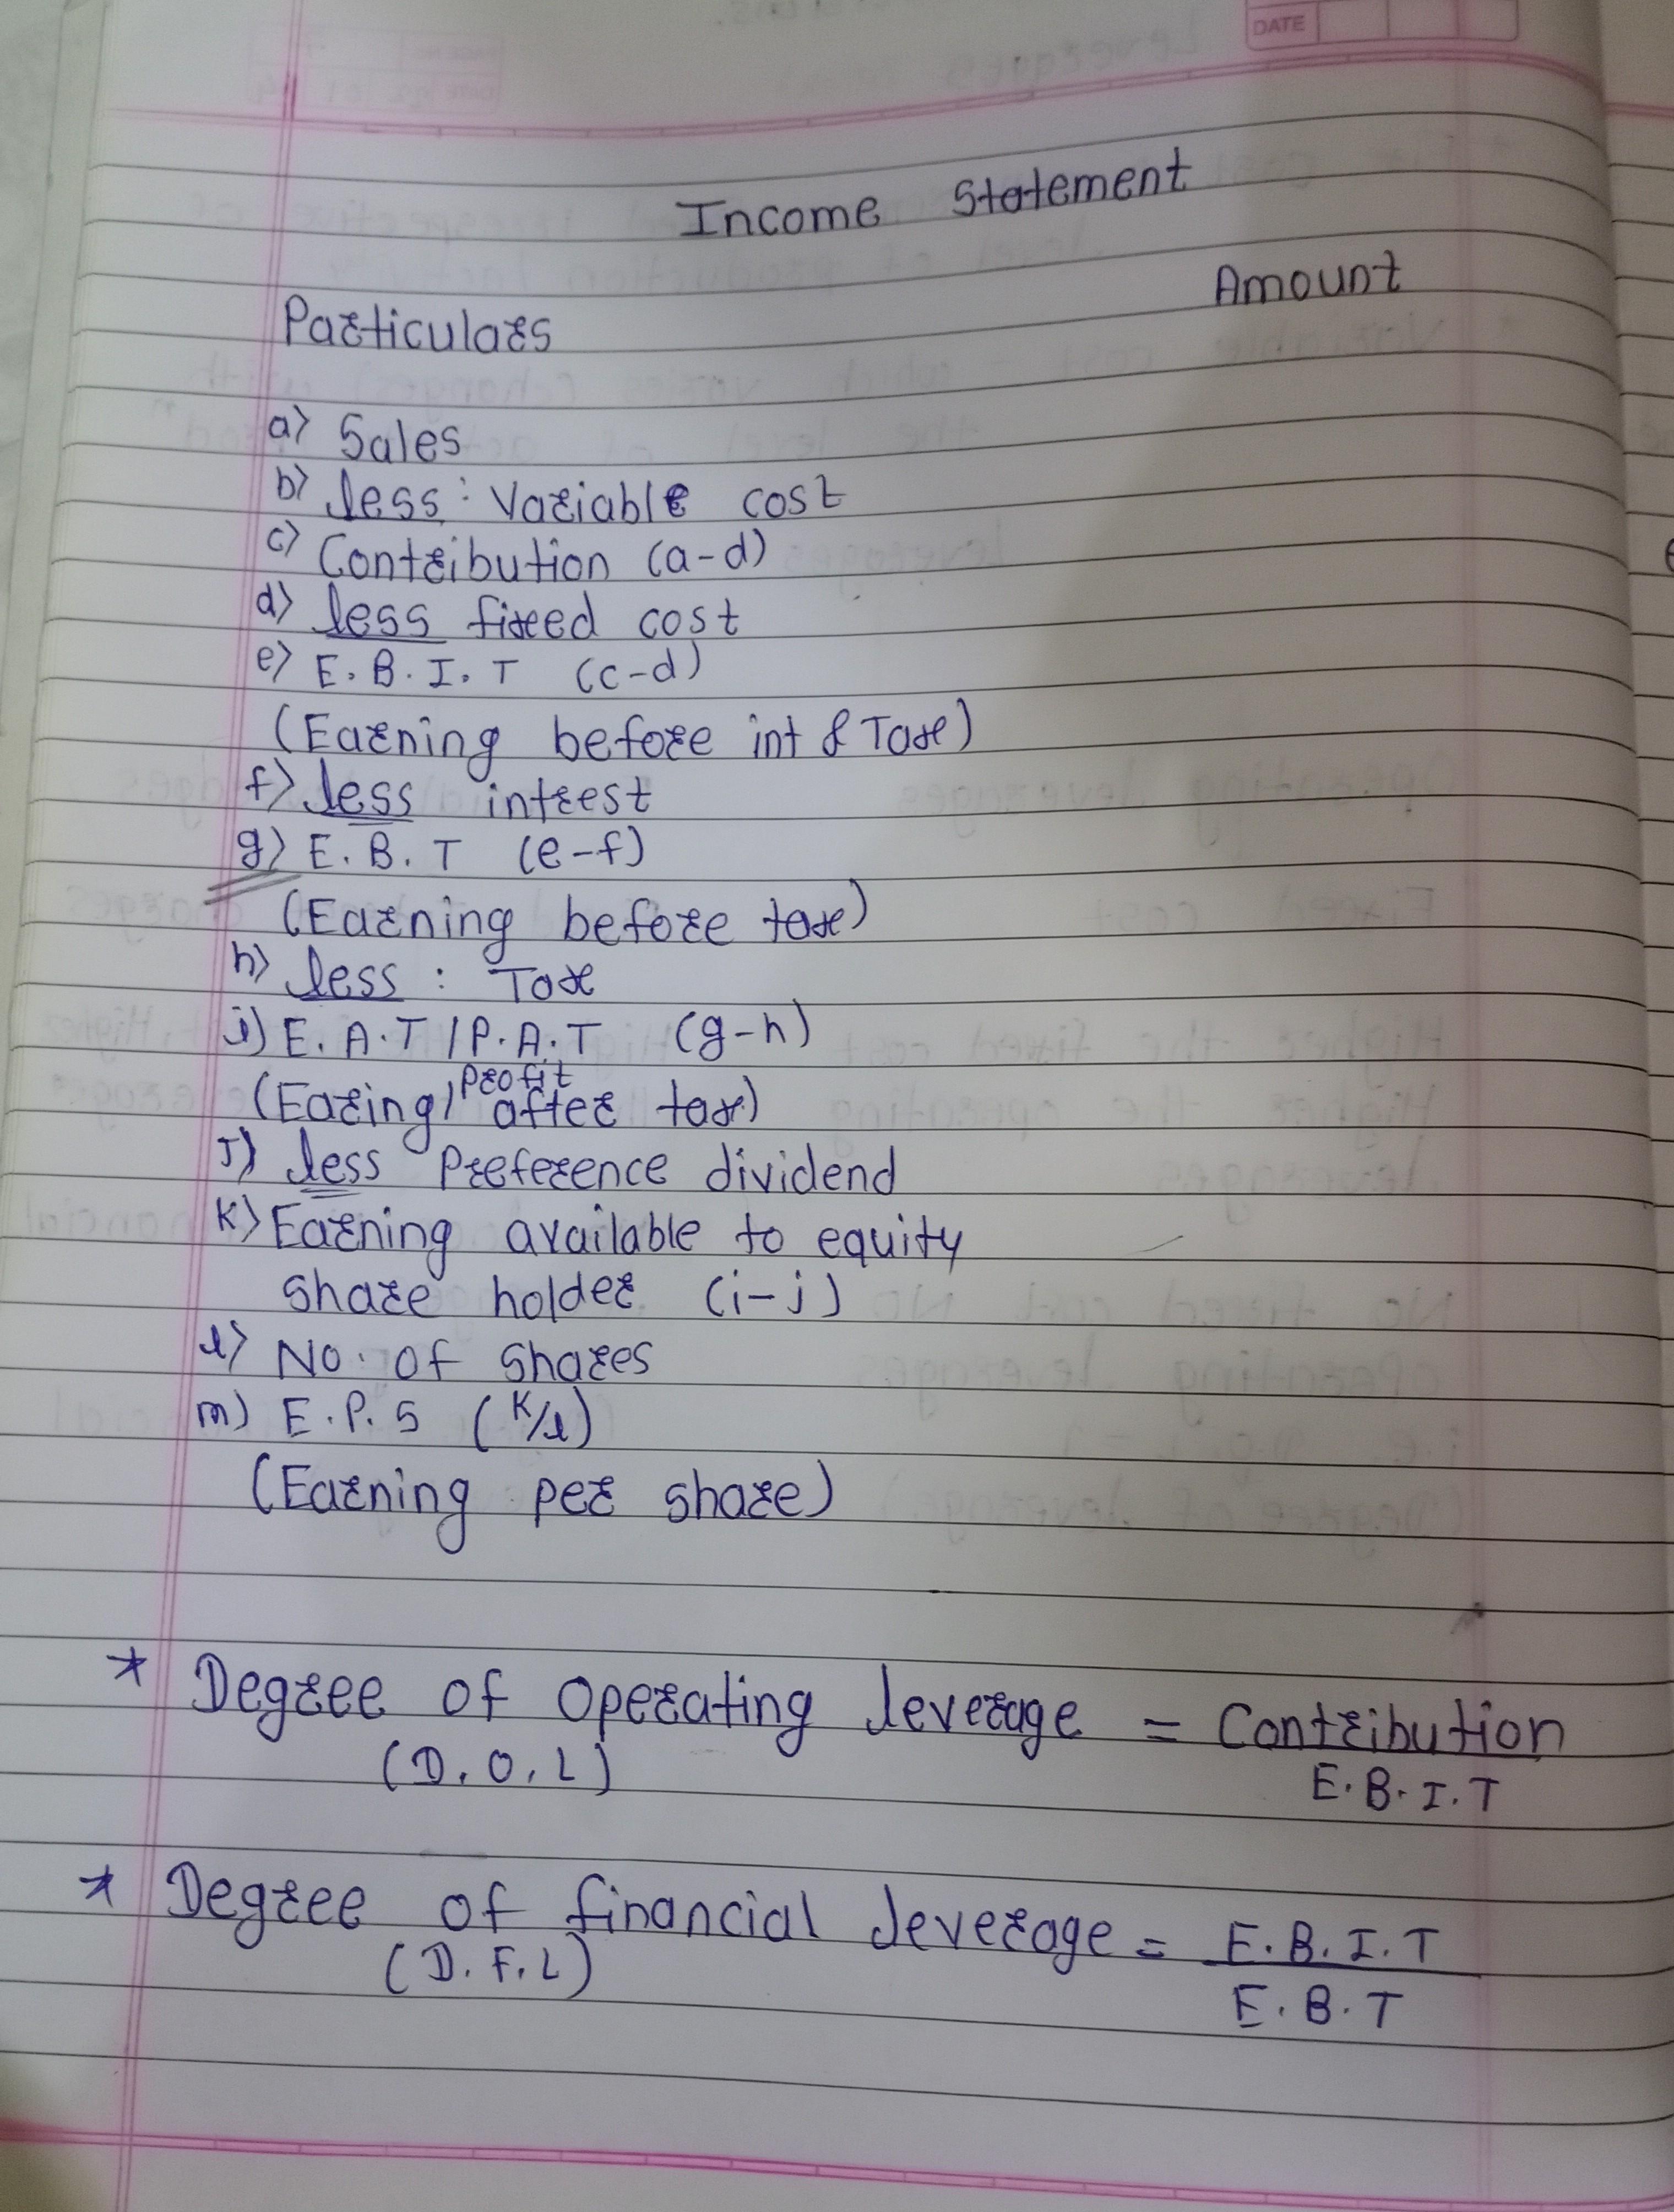 DATE
Income Statement
Particulars Amount
a) Sales
b) less: Variable cost
c) Contribution (a-d)
d) less fixed cost
e) E.B.I.T (c-d)
(Earning before int & Tax)
f) less intrest
g) E.B.T (e-f)
(Earning before tax)
h) less: Tax
i) E.A.T/P.A.T (g-h)
(Earing/Profit after tax)
J) less Preference dividend
K) Earning available to equity
share holder (i-j)
l) No. of shares
m) E.P.S (K/l)
(Earning per share)
* Degree of operating leverage = Contribution
(D.O.L) E.B.I.T
* Degree of financial leverage = E.B.I.T
(D.F.L) E.B.T